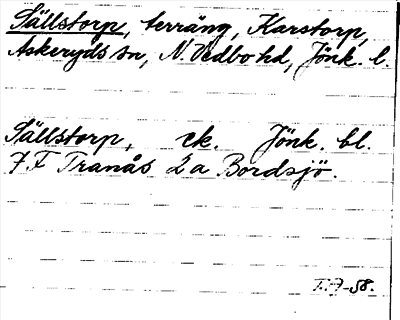 Sällstorp, terräng, Karstorp,
Askeryds sn, N. Vedbo hd, Jönk. l.
Sällstorp, ek. Jönk. bl.
7 F Tranås 2 a Bordsjö.
T.J-58.